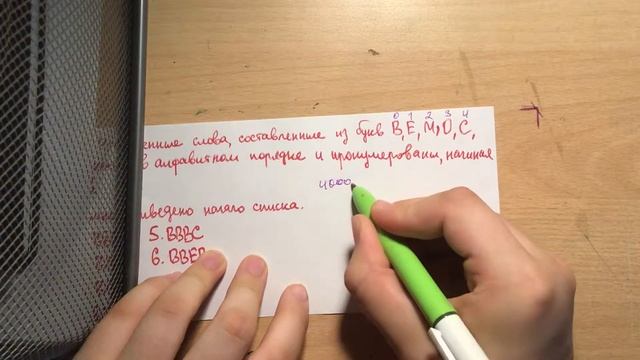 0 1 2 3 4
слова, составленные из букв В, Е, М, О, С,
в алфавитном порядке и пронумерованы, начиная
4000
начало списка.
5. ВВВС
6. ВВЕ